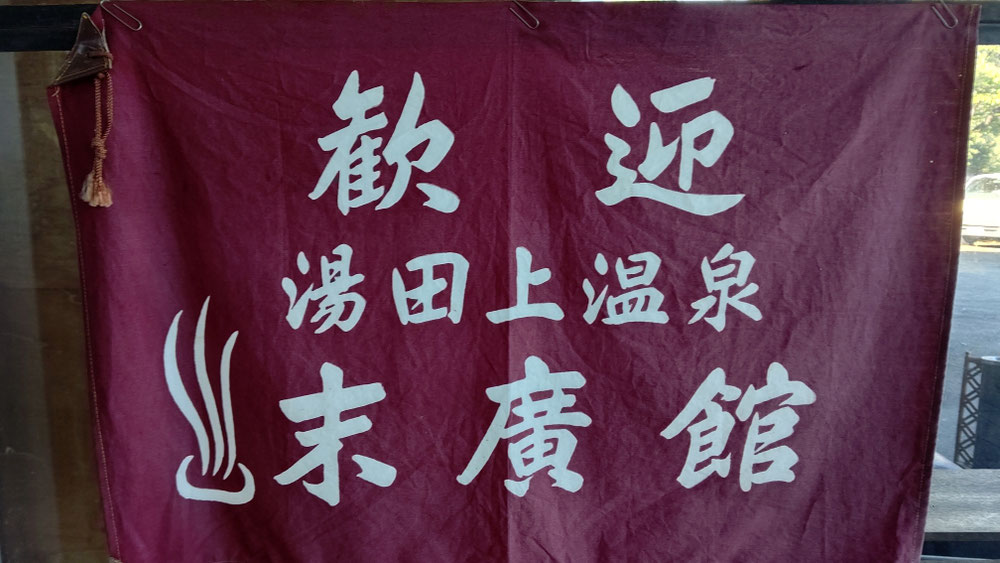 歓迎
湯田上温泉
末廣館